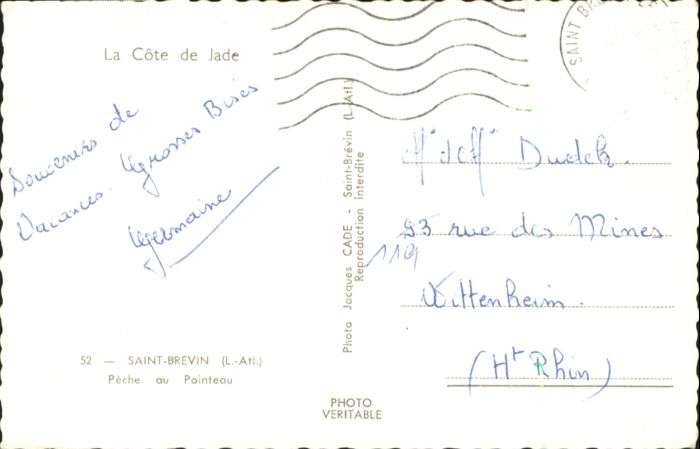 La Côte de Jade
Souvenirs de
Vacances. Grosses Bises
Germaine
52 — SAINT-BREVIN (L.-Atl.)
Pêche au Pointeau
Photo Jacques CADE - Saint-Brévin (L.-Atl.)
Reproduction interdite
PHOTO
VERITABLE
SAINT BR
Dudek.
53 rue des Mines
119
Wittenheim.
(Ht Rhin)